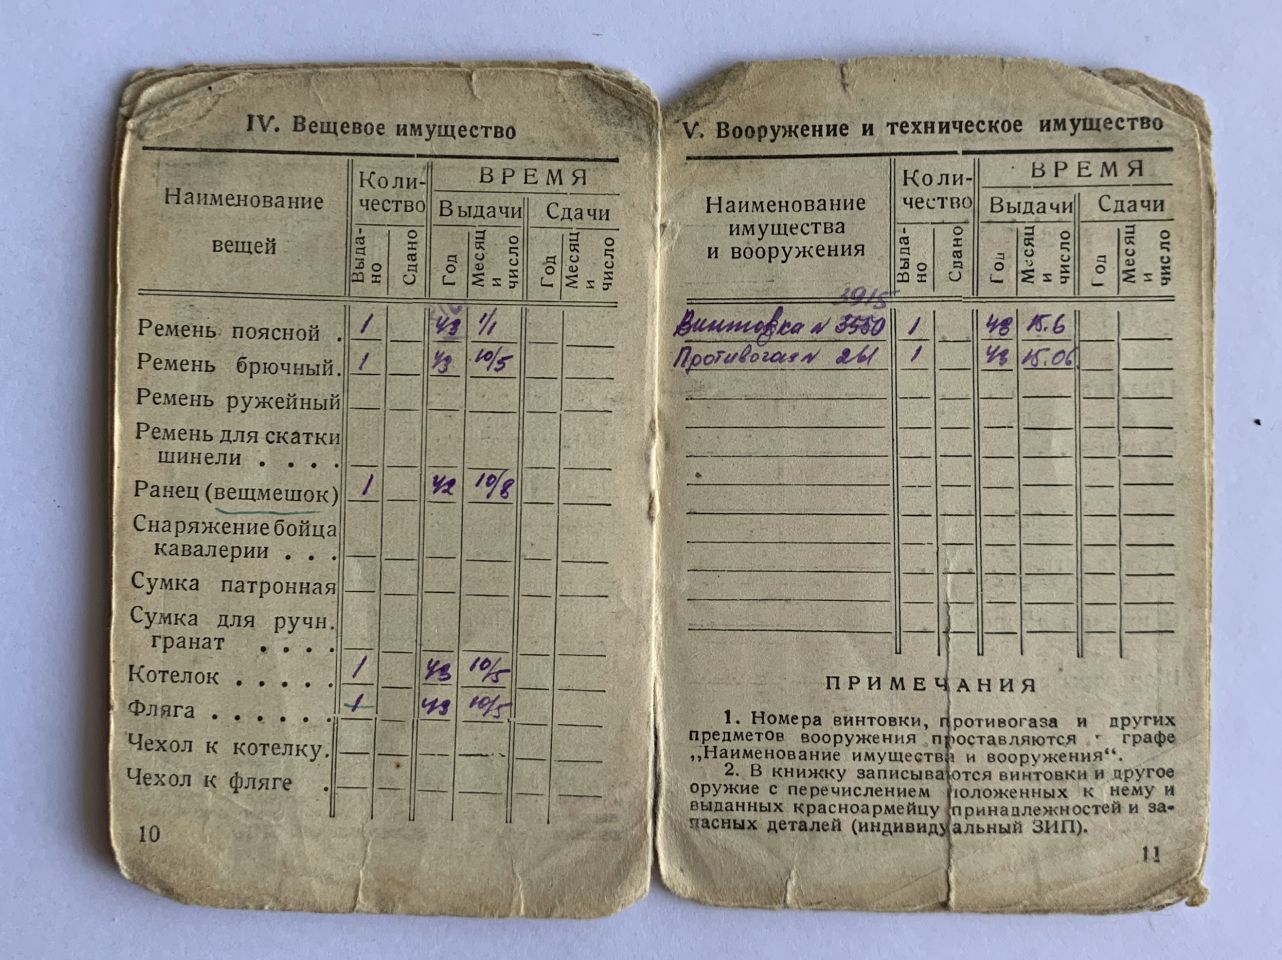 IV. Вещевое имущество
Наименование вещей
Коли-
чество
ВРЕМЯ
Выдачи
Сдачи
Выда-
но
Сдано
Год
Месяц
и
число
Год
Месяц
и
число
Ремень поясной . 1 43 1/1
Ремень брючный. 1 43 10/5
Ремень ружейный
Ремень для скатки
шинели . . . .
Ранец (вещмешок) 1 42 10/8
Снаряжение бойца
кавалерии . . .
Сумка патронная
Сумка для ручн.
гранат . . . .
Котелок . . . . . 1 43 10/5
Фляга . . . . . . 1 43 10/5
Чехол к котелку.
Чехол к фляге .
10
V. Вооружение и техническое имущество
Наименование
имущества
и вооружения
Коли-
чество
ВРЕМЯ
Выдачи
Сдачи
Выда-
но
Сдано
Год
Месяц
и
число
Год
Месяц
и
число
3915
Винтовка N 3550 1 43 15.6
Противогаз N 261 1 43 15.06
ПРИМЕЧАНИЯ
1. Номера винтовки, противогаза и других
предметов вооружения проставляются графе
„Наименование имущества и вооружения“.
2. В книжку записываются винтовки и другое
оружие с перечислением положенных к нему и
выданных красноармейцу принадлежностей и за-
пасных деталей (индивидуальный ЗИП).
11